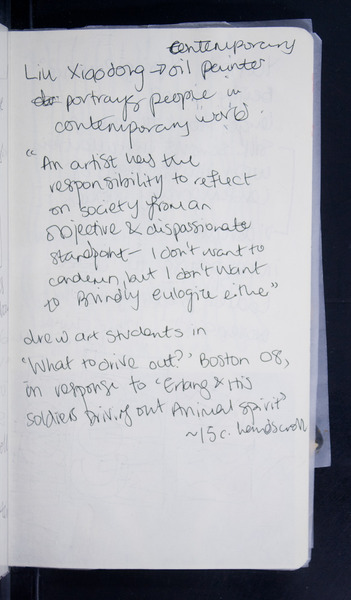 contemporary
Liu Xiaodong → oil painter
portrays people in
contemporary world.
"An artist has the
responsibility to reflect
on society from an
objective & dispassionate
standpoint – I don't want to
condemn, but I don't want
to blindly eulogise either"
drew art students in
'What to drive out?' Boston 08,
in response to 'Erlang & His
soldiers Driving out Animal spirit'
~15c. handscroll